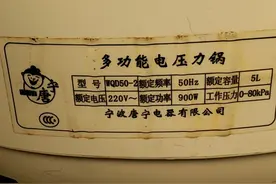 多功能电压力锅
型号 WQD50-2 额定频率 50Hz 额定容量 5L
额定电压 220V~ 额定功率 900W 工作压力 0-80kpa
宁波唐宁电器有限公司
唐宁
CCC